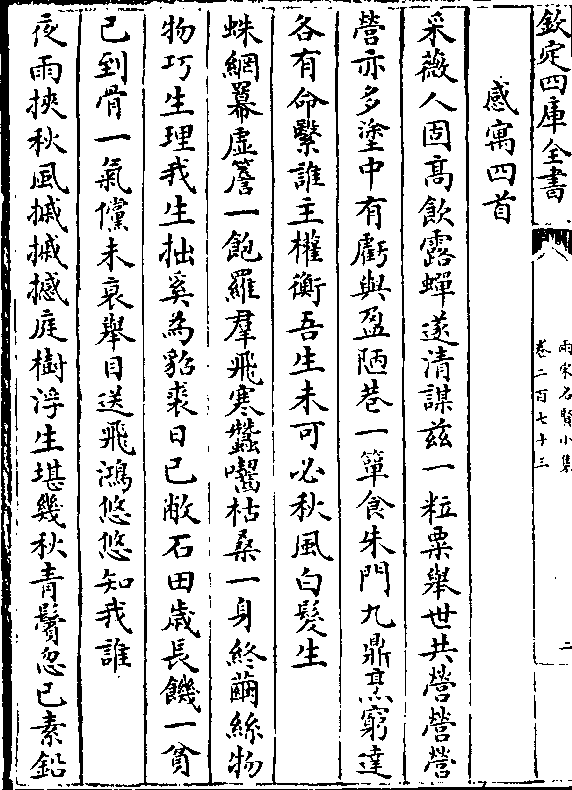 欽定四庫全書
兩宋名賢小集
卷二百七十三
二
感寓四首
采薇人固髙飲露蟬遂清謀兹一粒粟舉世共營營營
營亦多塗中有虧與盈陋巷一簞食朱門九鼎烹窮達
各有命繫誰主權衡吾生未可必秋風白髮生
蛛網羃虚簷一飽羅羣飛寒蠶囓枯桑一身終繭絲物
物巧生理我生拙奚為貂裘日已敝石田歳長饑一貧
已到骨一氣儻未衰舉目送飛鴻悠悠知我誰
夜雨挾秋風摵摵撼庭樹浮生堪幾秋青鬢忽已素鉛